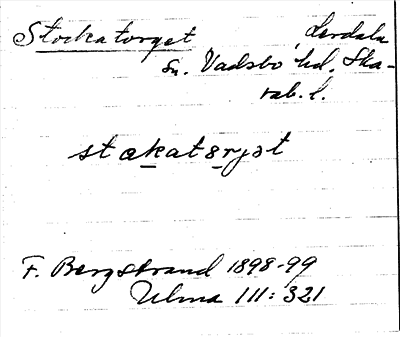 Stockatorget, Lerdala
sn. Vadsbo hd. Ska-
rab. l.
stakat8rjət
F. Bergstrand 1898-99
Ulma 111:321